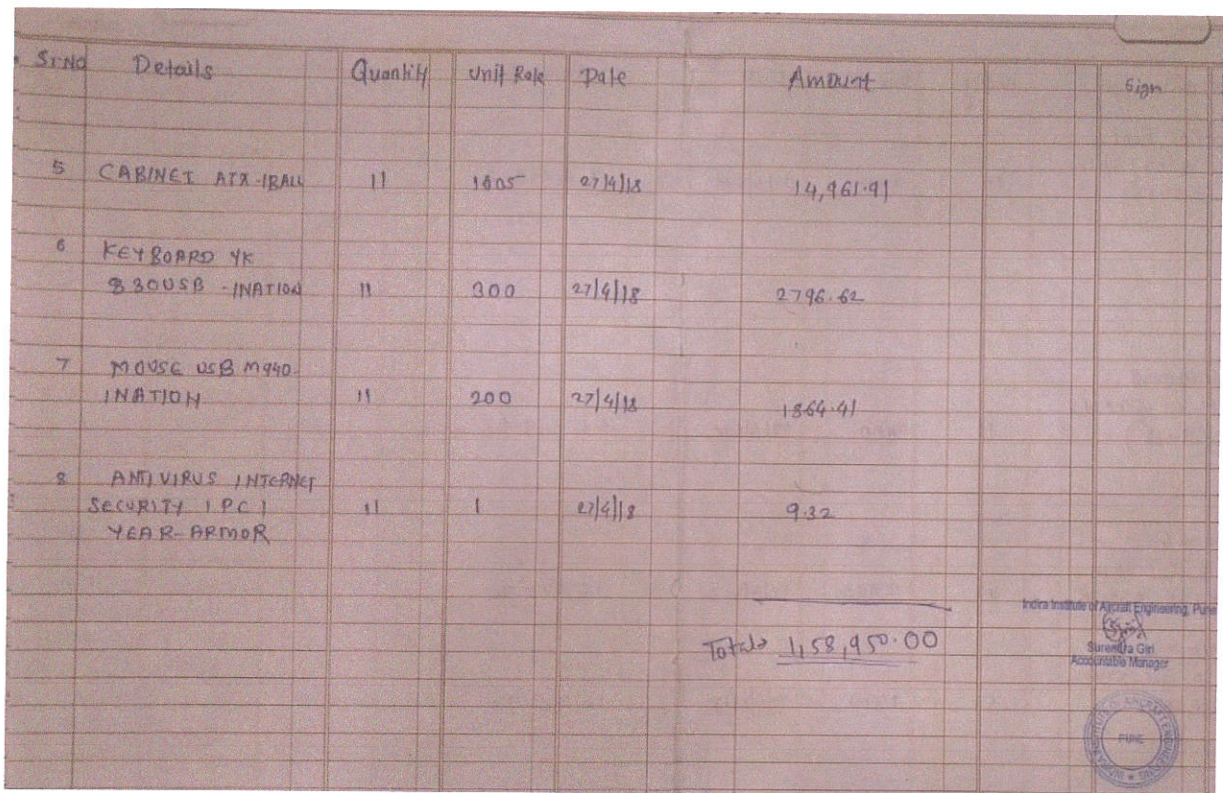 Sr.No Details Quantity Unit Rate Date Amount Sign
5 CABINET ATX-IBALL 11 1605 27/4/18 14,961.91
6 KEYBOARD YK
830USB -INATION 11 300 27/4/18 2796.62
7 MOUSE USB M940-
INATION 11 200 27/4/18 1864.41
8 ANTIVIRUS INTERNET
SECURITY 1 PC 1 11 1 27/4/18 9.32
YEAR-ARMOR
Indira Institute of Aircraft Engineering, Pune
Total 1,58,950.00
Surendra Giri
Accountable Manager
PUNE